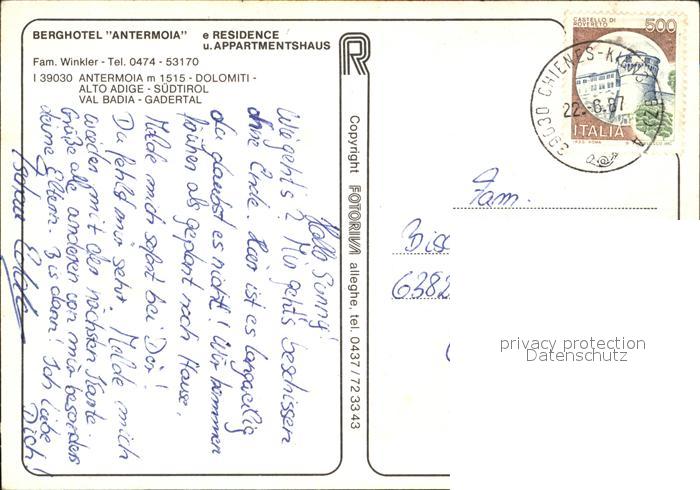 BERGHOTEL "ANTERMOIA" e RESIDENCE
u. APPARTMENTSHAUS
Fam. Winkler - Tel. 0474 - 53170
I 39030 ANTERMOIA m 1515 - DOLOMITI -
ALTO ADIGE - SÜDTIROL
VAL BADIA - GADERTAL
Hallo Sunny!
Wie geht's? Mir geht's beschissen
ohne Ende. Hier ist es langweilig
du glaubst es nicht! Wir kommen
früher als geplant nach Hause,
Melde mich sofort bei Dir!
Du fehlst mir sehr. Melde mich
wieder mit der nächsten Karte.
Grüße alle anderen von mir besonders
deine Eltern. Bis dann! Ich liebe
Dich!
R
Copyright FOTORIVA alleghe, tel. 0437/723343
CASTELLO DI
ROVERETO
500
ITALIA
39030 CHIENES-KIENS (BZ)
22.-6.87
Fam.
6382
privacy protection
Datenschutz